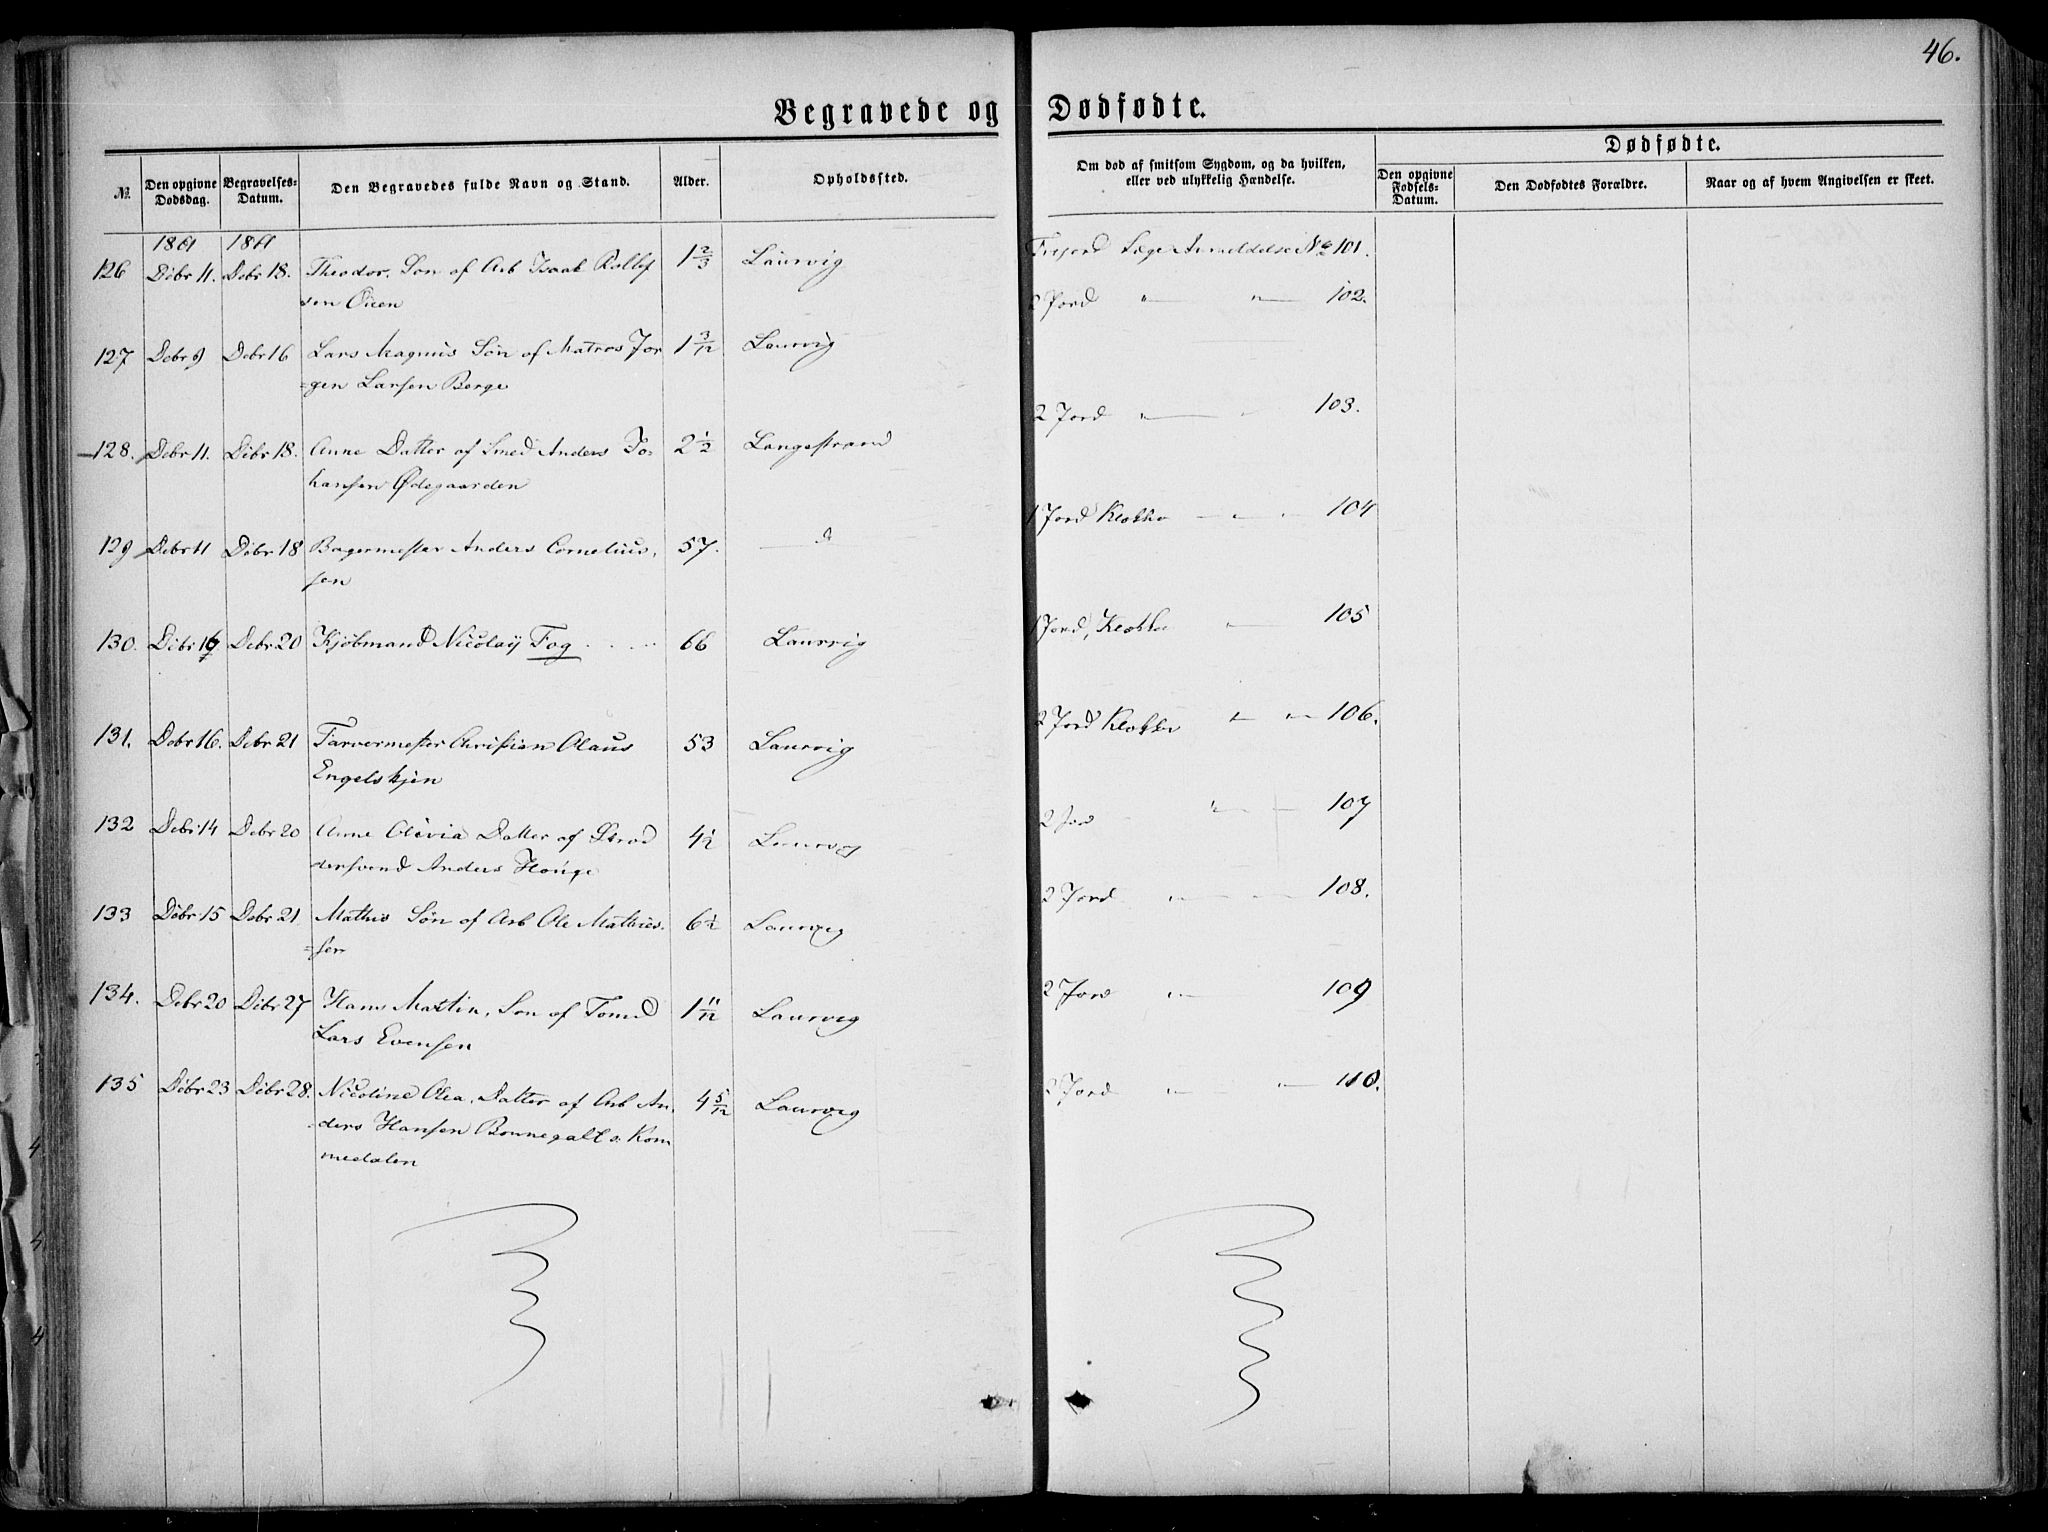 46.
Begravede og Dødfødte.
№
Den opgivne Dødsdag.
Begravelses-Datum.
Den Begravedes fulde Navn og Stand.
Alder.
Opholdssted.
Om død af smitsom Sygdom, og da hvilken, eller ved ulykkelig Hændelse.
Dødfødte.
Den opgivne Fødsels-Datum.
Den Dødfødtes Forældre.
Naar og af hvem Angivelsen er skeet.
1861 1861
126 Debr 11. Debr 18. Theodor, Søn af Arb Isaak Rollef
sen 1 2/3 Laurvig
127 Debr 9 Debr 16 Lars Magnus Søn af Matros Jør
=gen Larsen Berge 1 3/12 Laurvig
128. Debr 11. Debr 18. Anne Datter af Smed Anders Jo-
hansen Ødegaarden 2 1/2 Langestrand
129 Debr 11 Debr 18 Bagermester Anders Cornelius-
sen 57. — d
130. Debr Debr 20 Kjøbmand Nicolay Fog 66 Laurvig
131. Debr 16. Debr 21 Farvermester Christian Olaus
Engelskjøn 53 Laurvig
132 Debr 14 Debr 20 Anne Olivia Datter af Skræd
dersvend Anders Houge 4 1/2 Laurvig
133 Debr 15 Debr 21 Mathis Søn af Arb Ole Mathies-
=sen 6 1/2 Laurvig
134. Debr 20 Debr 27 Hans Martin, Søn af Tømd
Lars Evensen 1 11/12 Laurvig
135 Debr 23 Debr 28. Nicoline Olea, Datter af Arb An-
=ders Hansen
medalen 4 5/12 Laurvig
Jord Læge Anmeldelse No 101.
2 Jord " — " — 102.
2 Jord " — " 103.
1 Jord Klokke — " — 104
1 Jord, Klokke " — 105
2 Jord Klokke " — " — 106.
2 Jor " — 107
2 Jord " — " — 108.
2 Jord " — 109
2 Jord " — " — 110.